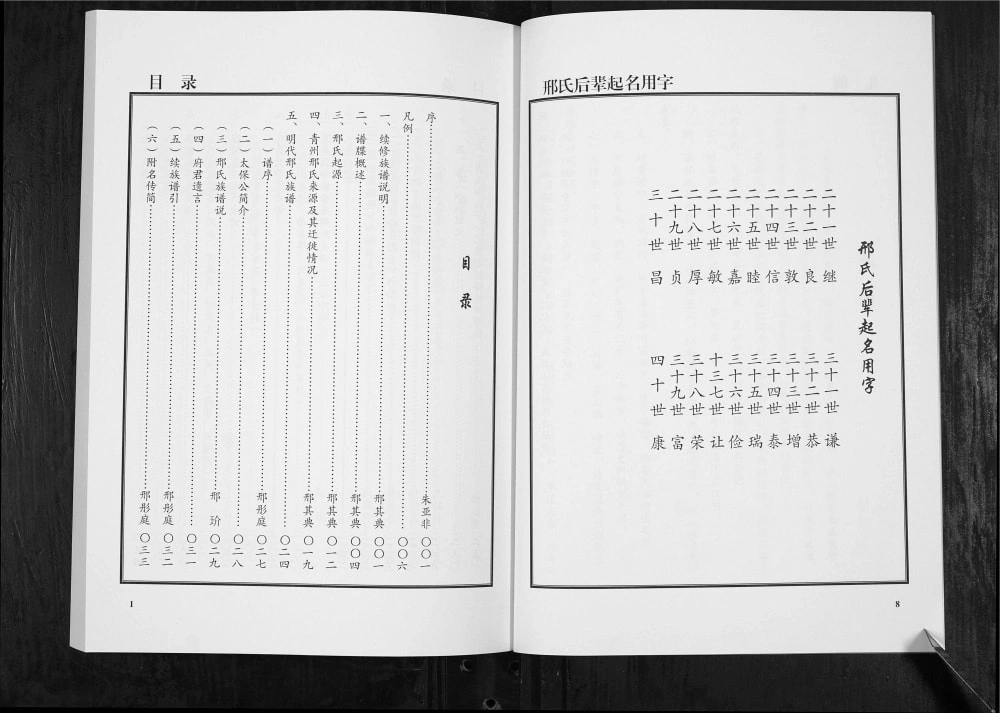 邢氏后辈起名用字
邢氏后辈起名用字
二十一世 继
二十二世 良
二十三世 敦
二十四世 信
二十五世 睦
二十六世 嘉
二十七世 敏
二十八世 厚
二十九世 贞
三十世 昌
三十一世 谦
三十二世 恭
三十三世 增
三十四世 泰
三十五世 瑞
三十六世 俭
十三七世 让
三十八世 荣
三十九世 富
四十世 康
8
目 录
目 录
序……朱亚非 〇〇一
凡例……〇〇六
一、续修族谱说明……邢其典 〇〇一
二、谱牒概述……邢其典 〇〇四
三、邢氏起源……邢其典 〇一二
四、青州邢氏来源及其迁徙情况……邢其典 〇一九
五、明代邢氏族谱……〇二四
（一）谱序……邢彤庭 〇二七
（二）太保公简介……〇二八
（三）邢氏族谱说……邢 玠 〇二九
（四）府君遗言……〇三一
（五）续族谱引……邢彤庭 〇三二
（六）附名传简……邢彤庭 〇三三
1